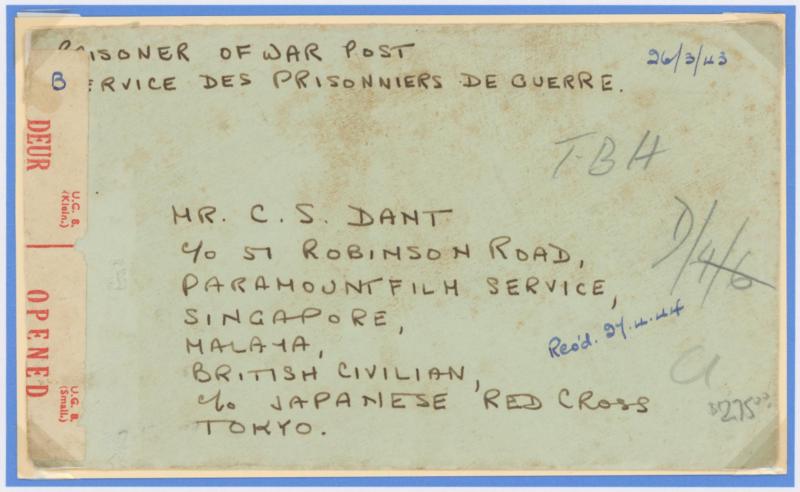 PRISONER OF WAR POST
SERVICE DES PRISONNIERS DE GUERRE.
26/3/43
B
DEUR
U.G. 8.
(Klein.)
OPENED
U.G. 8.
(Small.)
T.B H
D/4/6
MR. C. S. DANT
c/o 51 ROBINSON ROAD,
PARAMOUNT FILM SERVICE,
SINGAPORE,
MALAYA,
BRITISH CIVILIAN,
c/o JAPANESE RED CROSS
TOKYO.
Recd. 27.4.44
$275.00